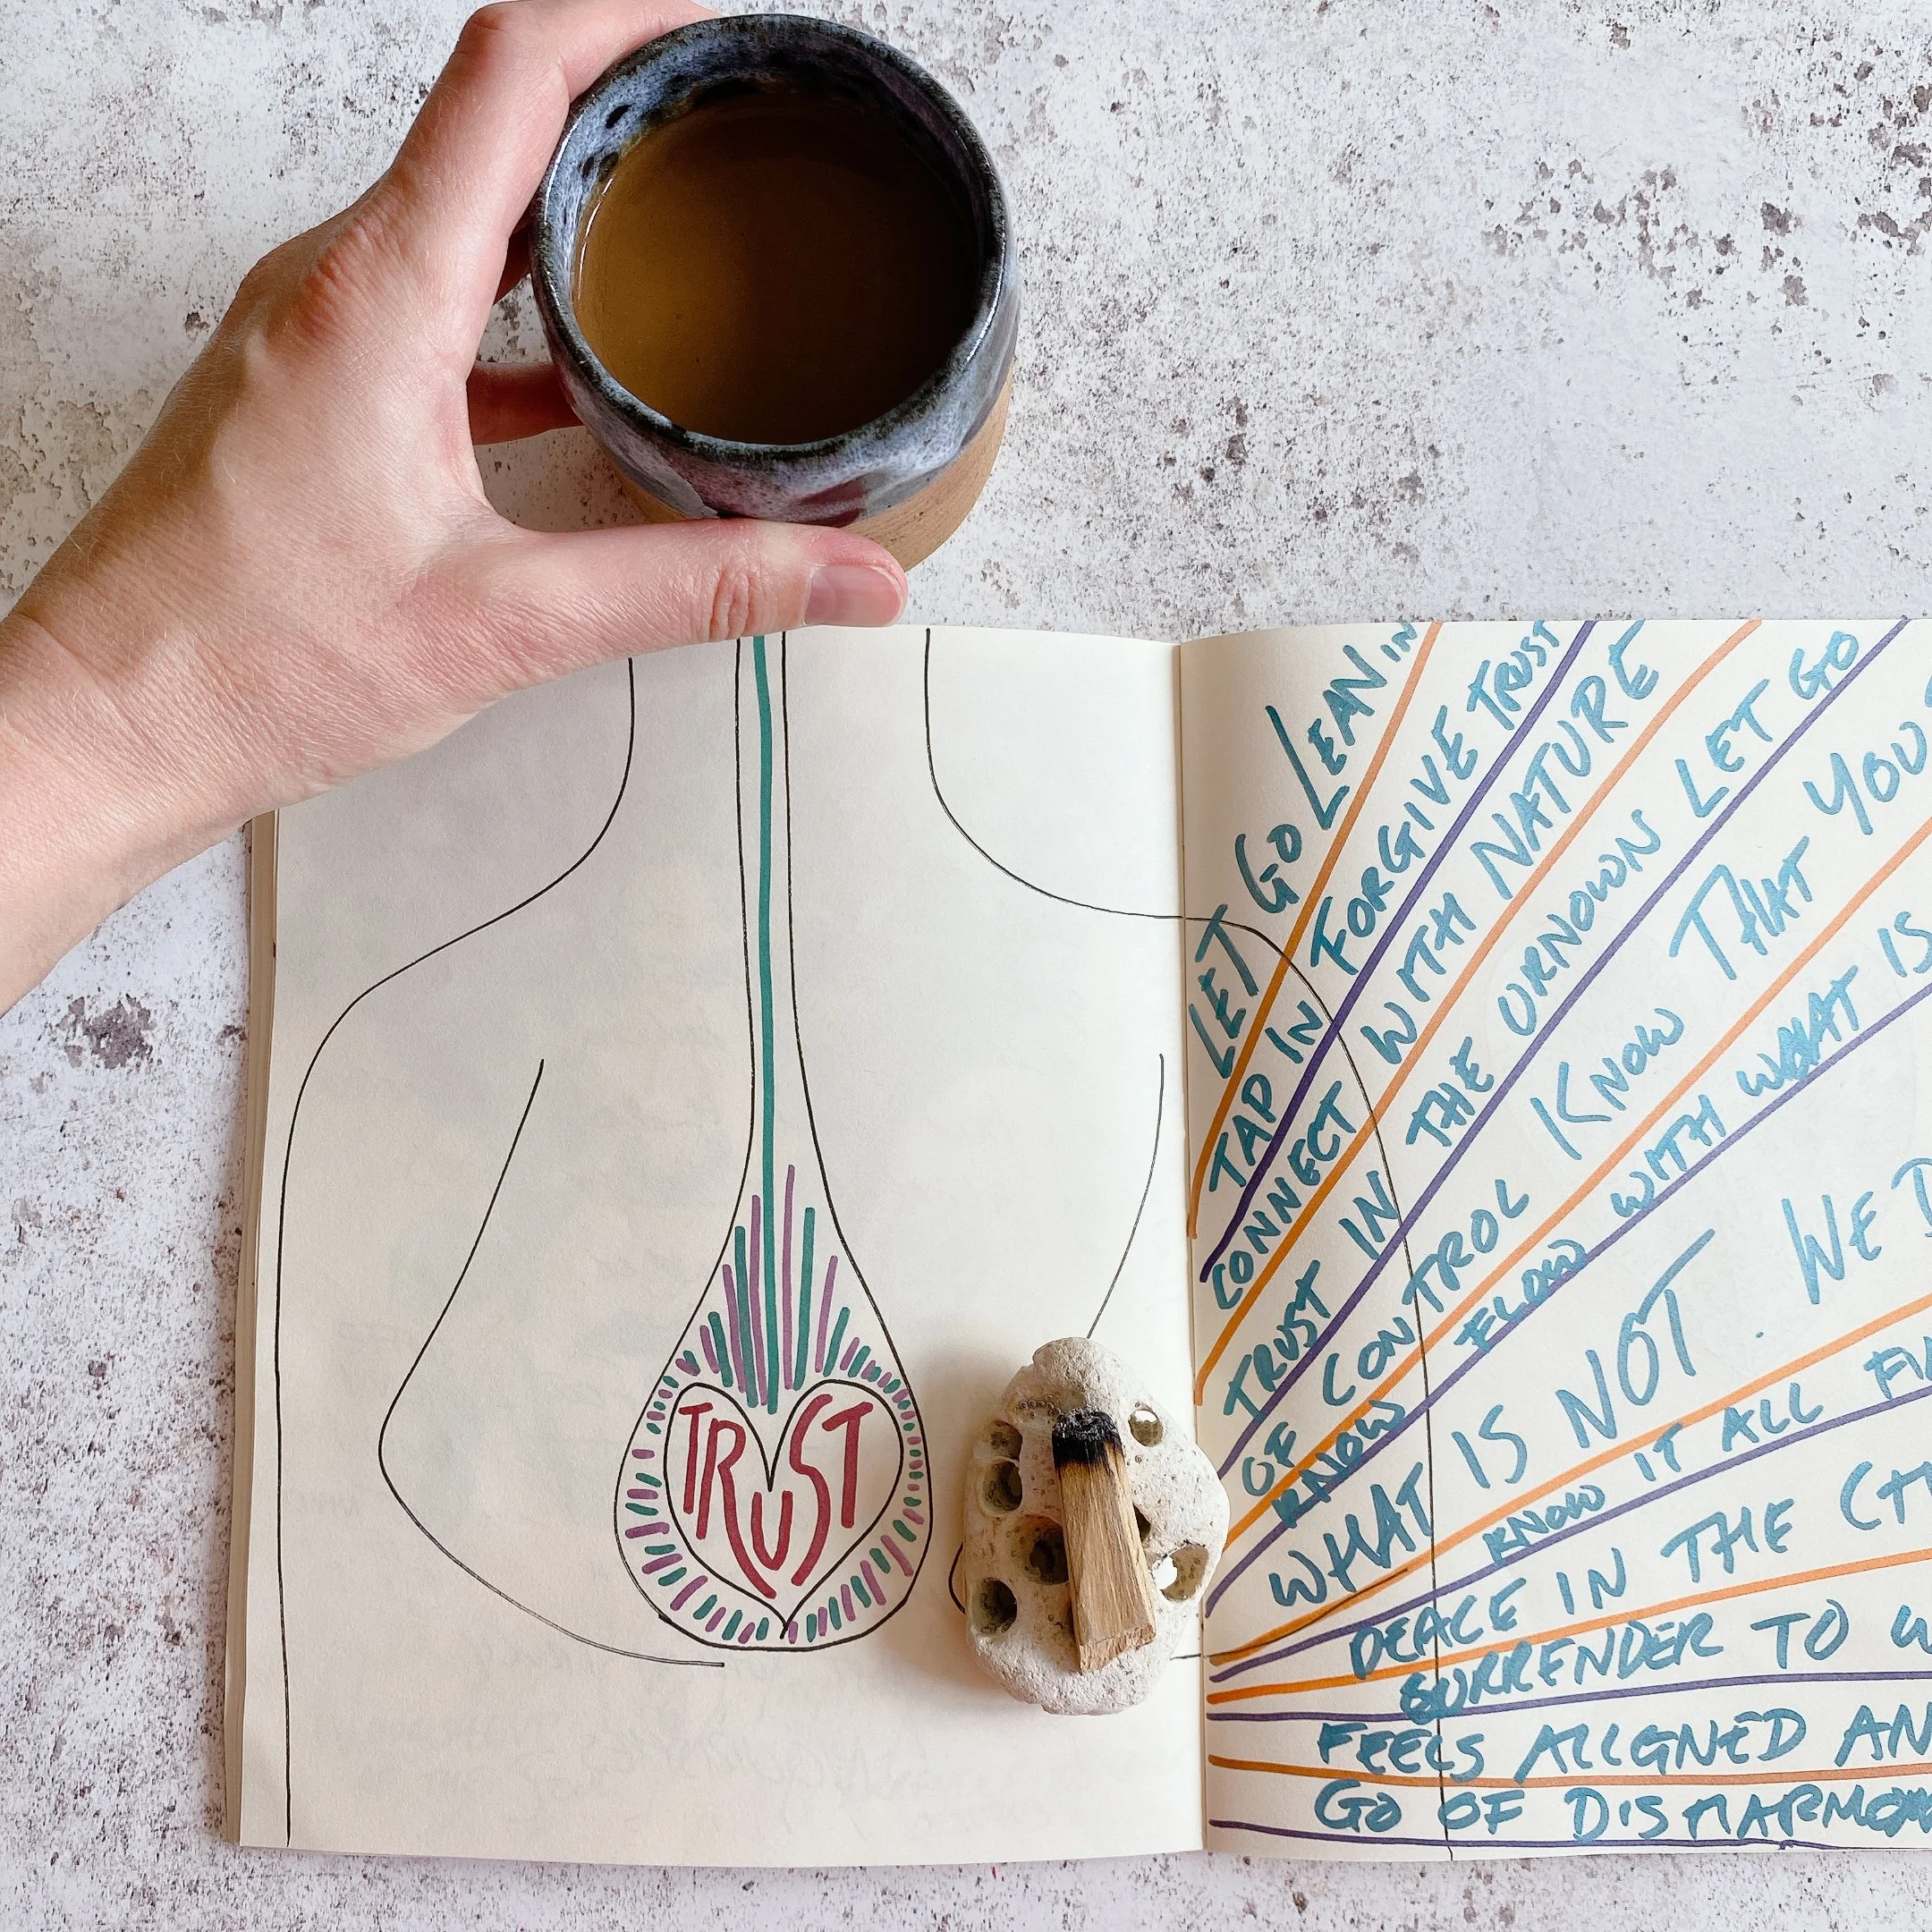 TRUST
LET GO LEAN IN
TAP IN FORGIVE TRUST
CONNECT WITH NATURE
TRUST IN THE UNKNOWN LET GO
OF CONTROL KNOW THAT YOU
KNOW FLOW WITH WHAT IS
WHAT IS NOT. WE
KNOW IT ALL
PEACE IN THE
SURRENDER TO
FEELS ALIGNED
GO OF DISHARMONY